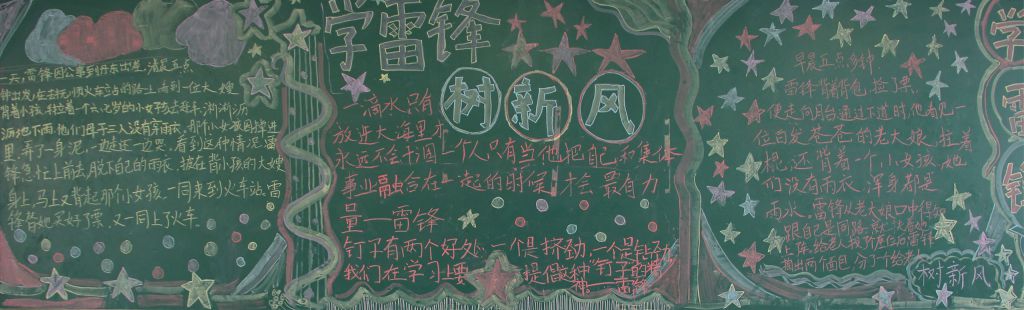 一天,雷锋因公事到丹东出差,清晨五点
钟出发,在去抚顺火车站的路上,看到一位大嫂
背着小孩,手拉着一个六、七岁的小女孩去赶车,淅淅沥
沥地下雨,他们母子三人没有穿雨衣,那个小女孩因掉进
里,弄了一身泥,一边走一边哭,看到这种情况,雷
锋急忙上前去,脱下自己的雨衣,披在背小孩的大嫂
身上,马上又背起那个小女孩,一同来到火车站,雷
锋替她买好了票,又一同上火车。
学雷锋
树新风
一滴水只有
放进大海里才
永远不会干涸一个人只有当他把自己和集体
事业融合在一起的时候才会最有力
量——雷锋
钉子有两个好处:一个是挤劲,一个是钻劲,
我们在学习上要提倡做种"钉子的精
神——雷锋
早晨五点多钟
雷锋背背包,拉了票,
便走向月台通过下道时,他看见一
位白发苍苍的老大娘,拉着
棍,还背着一个小女孩,她
们没有雨衣,浑身都是
雨水。雷锋从老大娘口中得
跟自己是同路
上车,给老人找了座位雷锋
两个面包,分了一给老
树新风
学
雷
锋